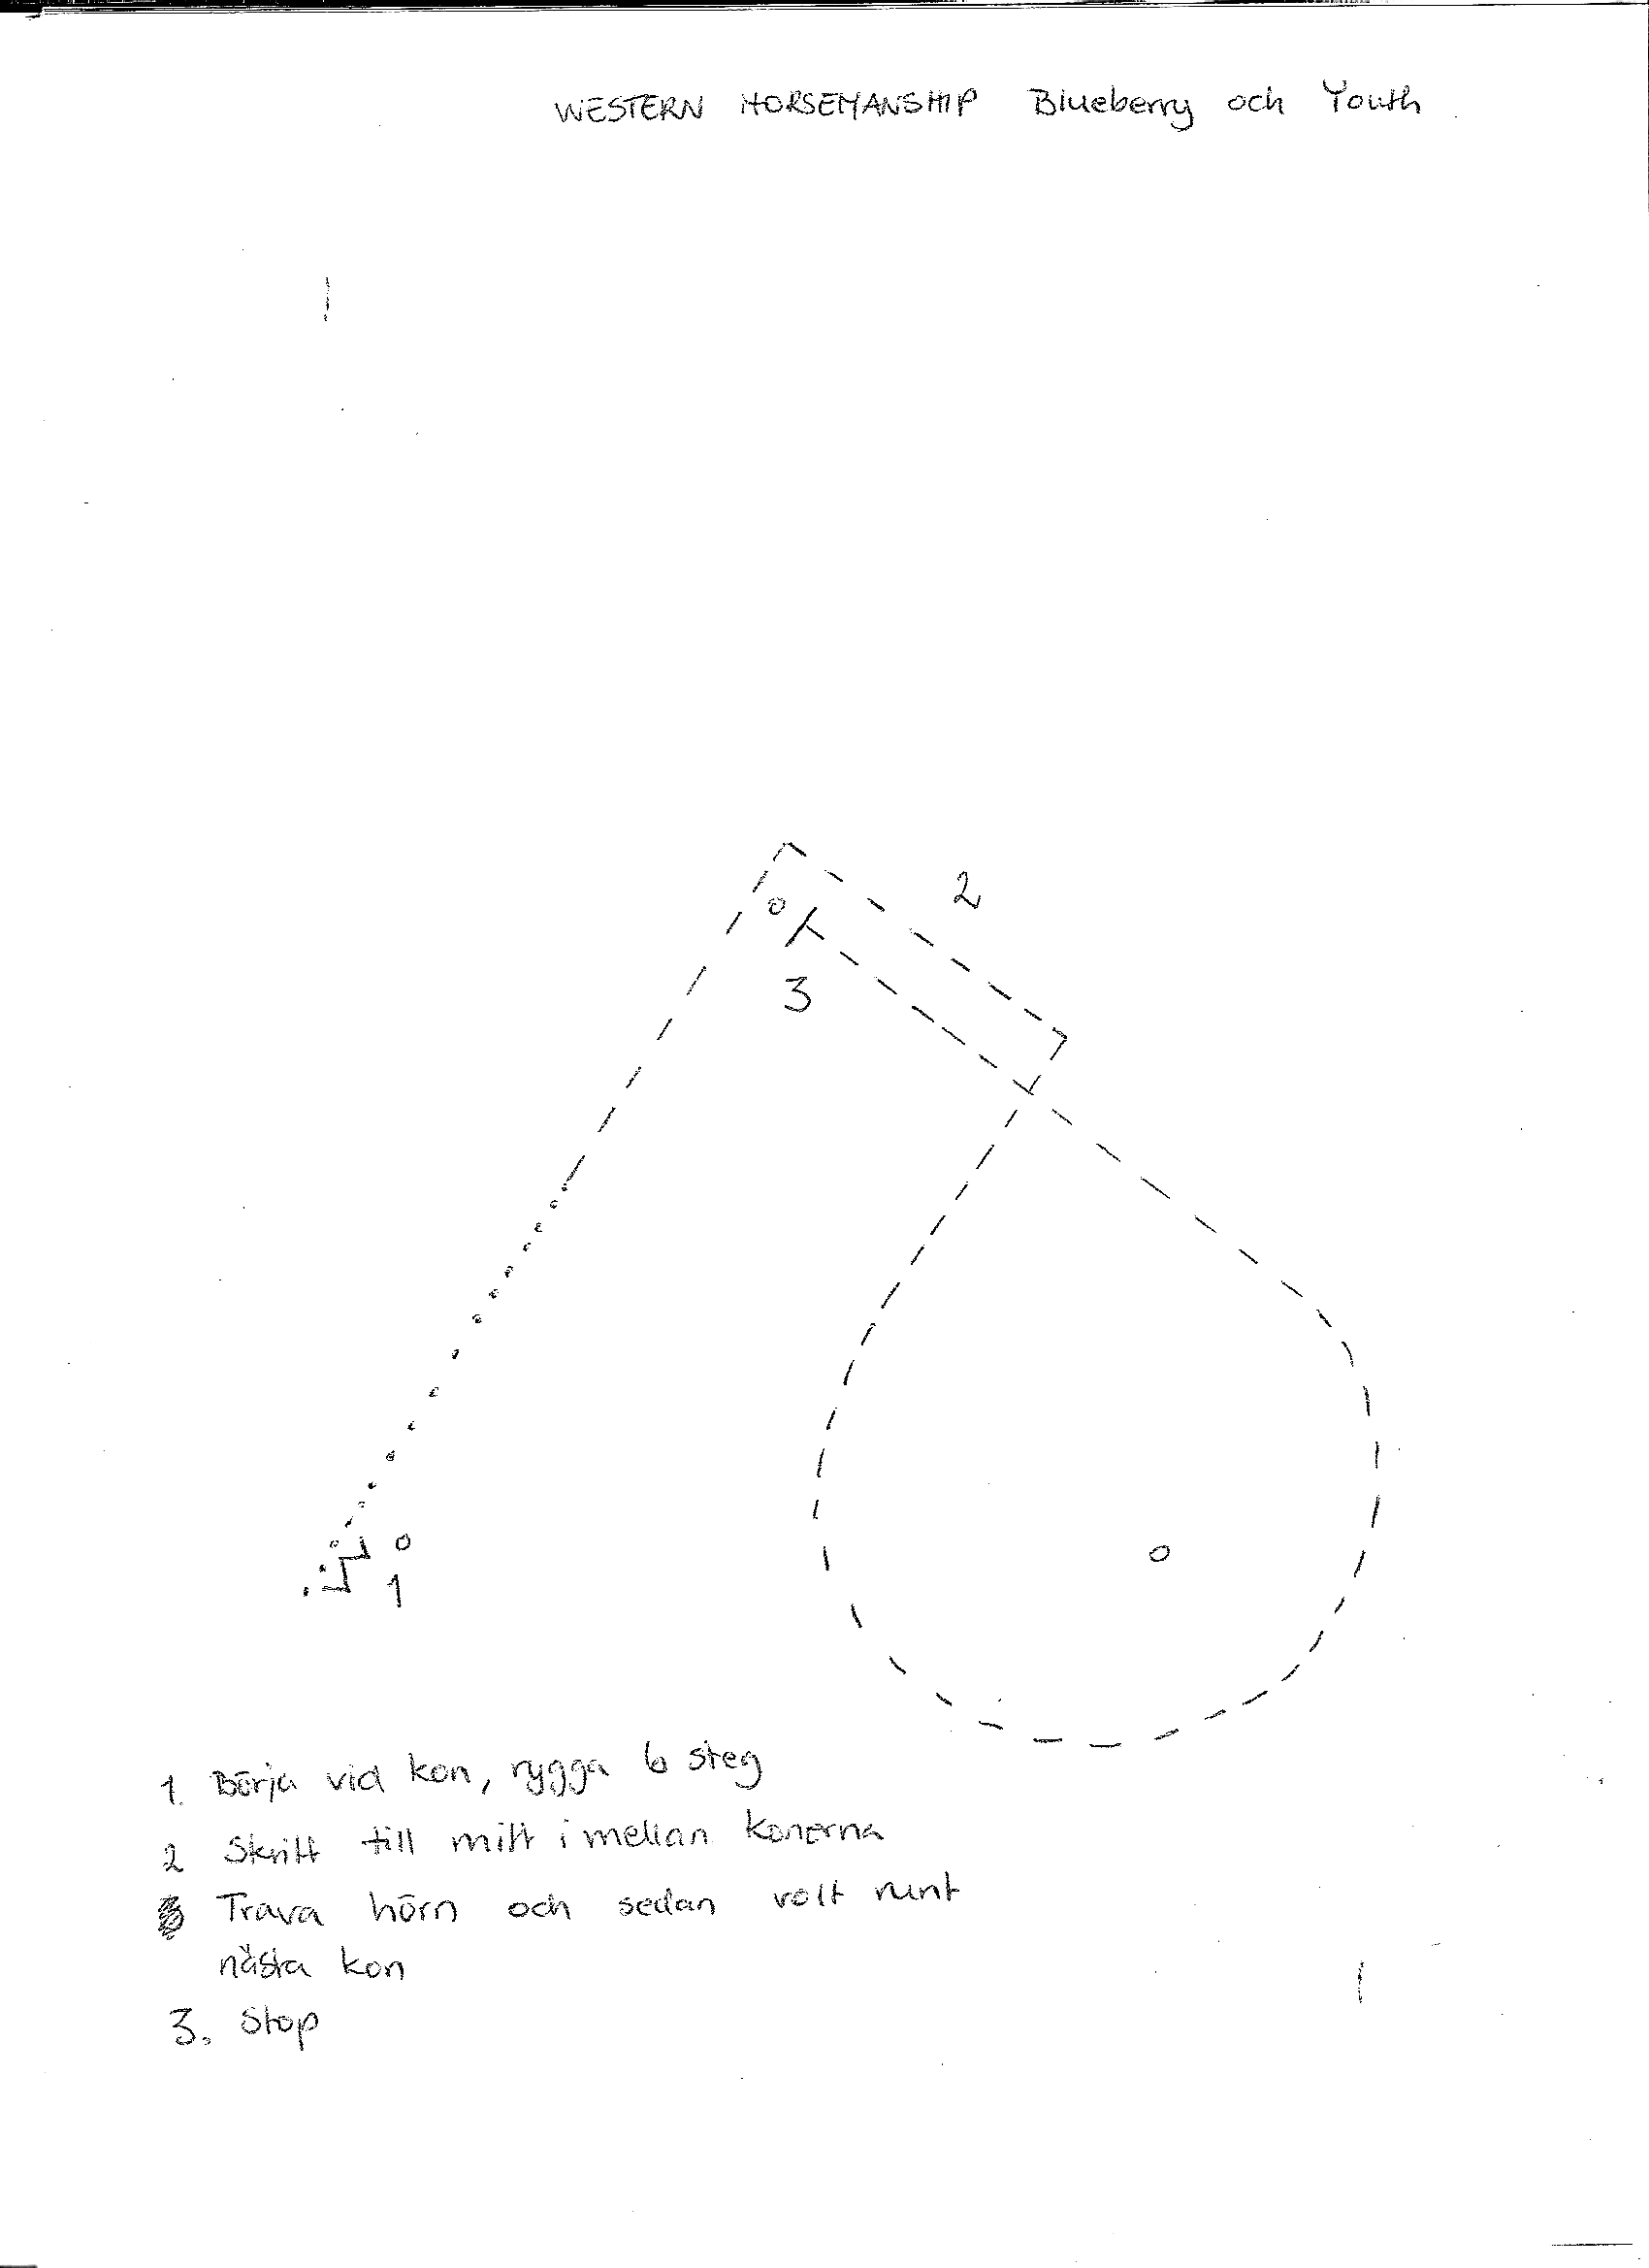 WESTERN HORSEMANSHIP Blueberry och Youth
2
3
1
1. Börja vid kon, rygga 6 steg
2 Skritt till mitt i mellan konerna
Trava hörn och sedan volt runt
nästa kon
3. Stop